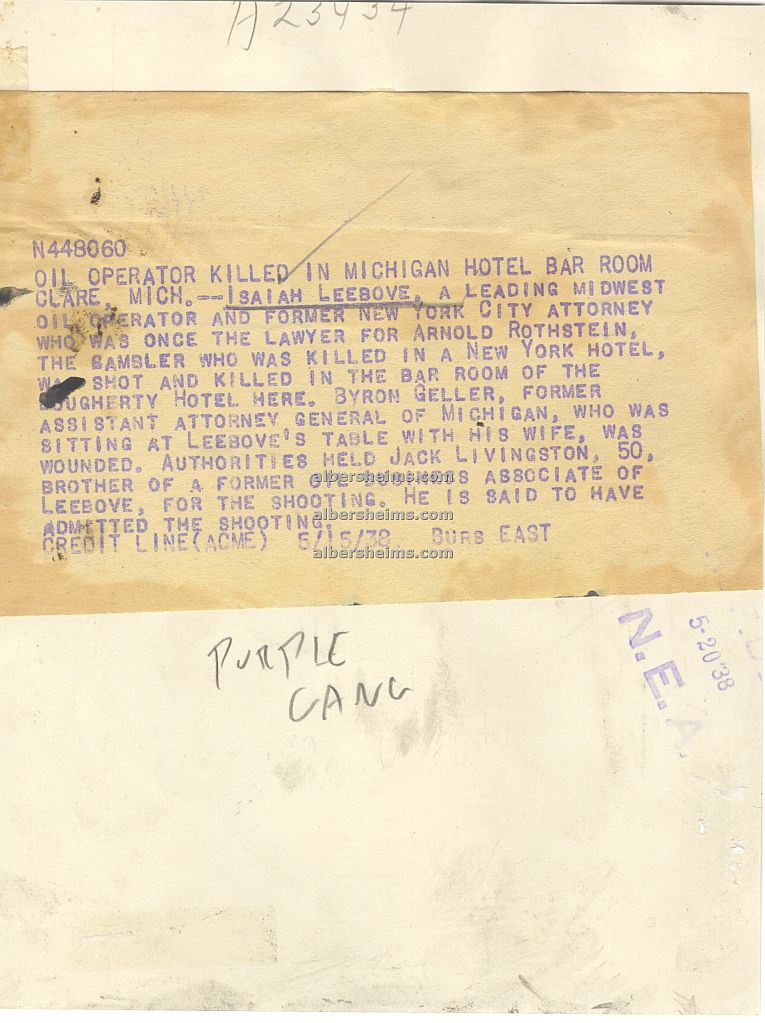 A23434
N448060
OIL OPERATOR KILLED IN MICHIGAN HOTEL BAR ROOM
CLARE, MICH.--ISAIAH LEEBOVE, A LEADING MIDWEST
OIL OPERATOR AND FORMER NEW YORK CITY ATTORNEY
WHO WAS ONCE THE LAWYER FOR ARNOLD ROTHSTEIN,
THE GAMBLER WHO WAS KILLED IN A NEW YORK HOTEL,
WAS SHOT AND KILLED IN THE BAR ROOM OF THE
DOUGHERTY HOTEL HERE. BYRON GELLER, FORMER
ASSISTANT ATTORNEY GENERAL OF MICHIGAN, WHO WAS
SITTING AT LEEBOVE'S TABLE WITH HIS WIFE, WAS
WOUNDED. AUTHORITIES HELD JACK LIVINGSTON, 50,
albersheims.com
BROTHER OF A FORMER OIL BUSINESS ASSOCIATE OF
LEEBOVE, FOR THE SHOOTING. HE IS SAID TO HAVE
albersheims.com
ADMITTED THE SHOOTING.
CREDIT LINE(ACME) 5/15/38 BURS EAST
albersheims.com
N.E.A.
5-20'38
PURPLE
GANG